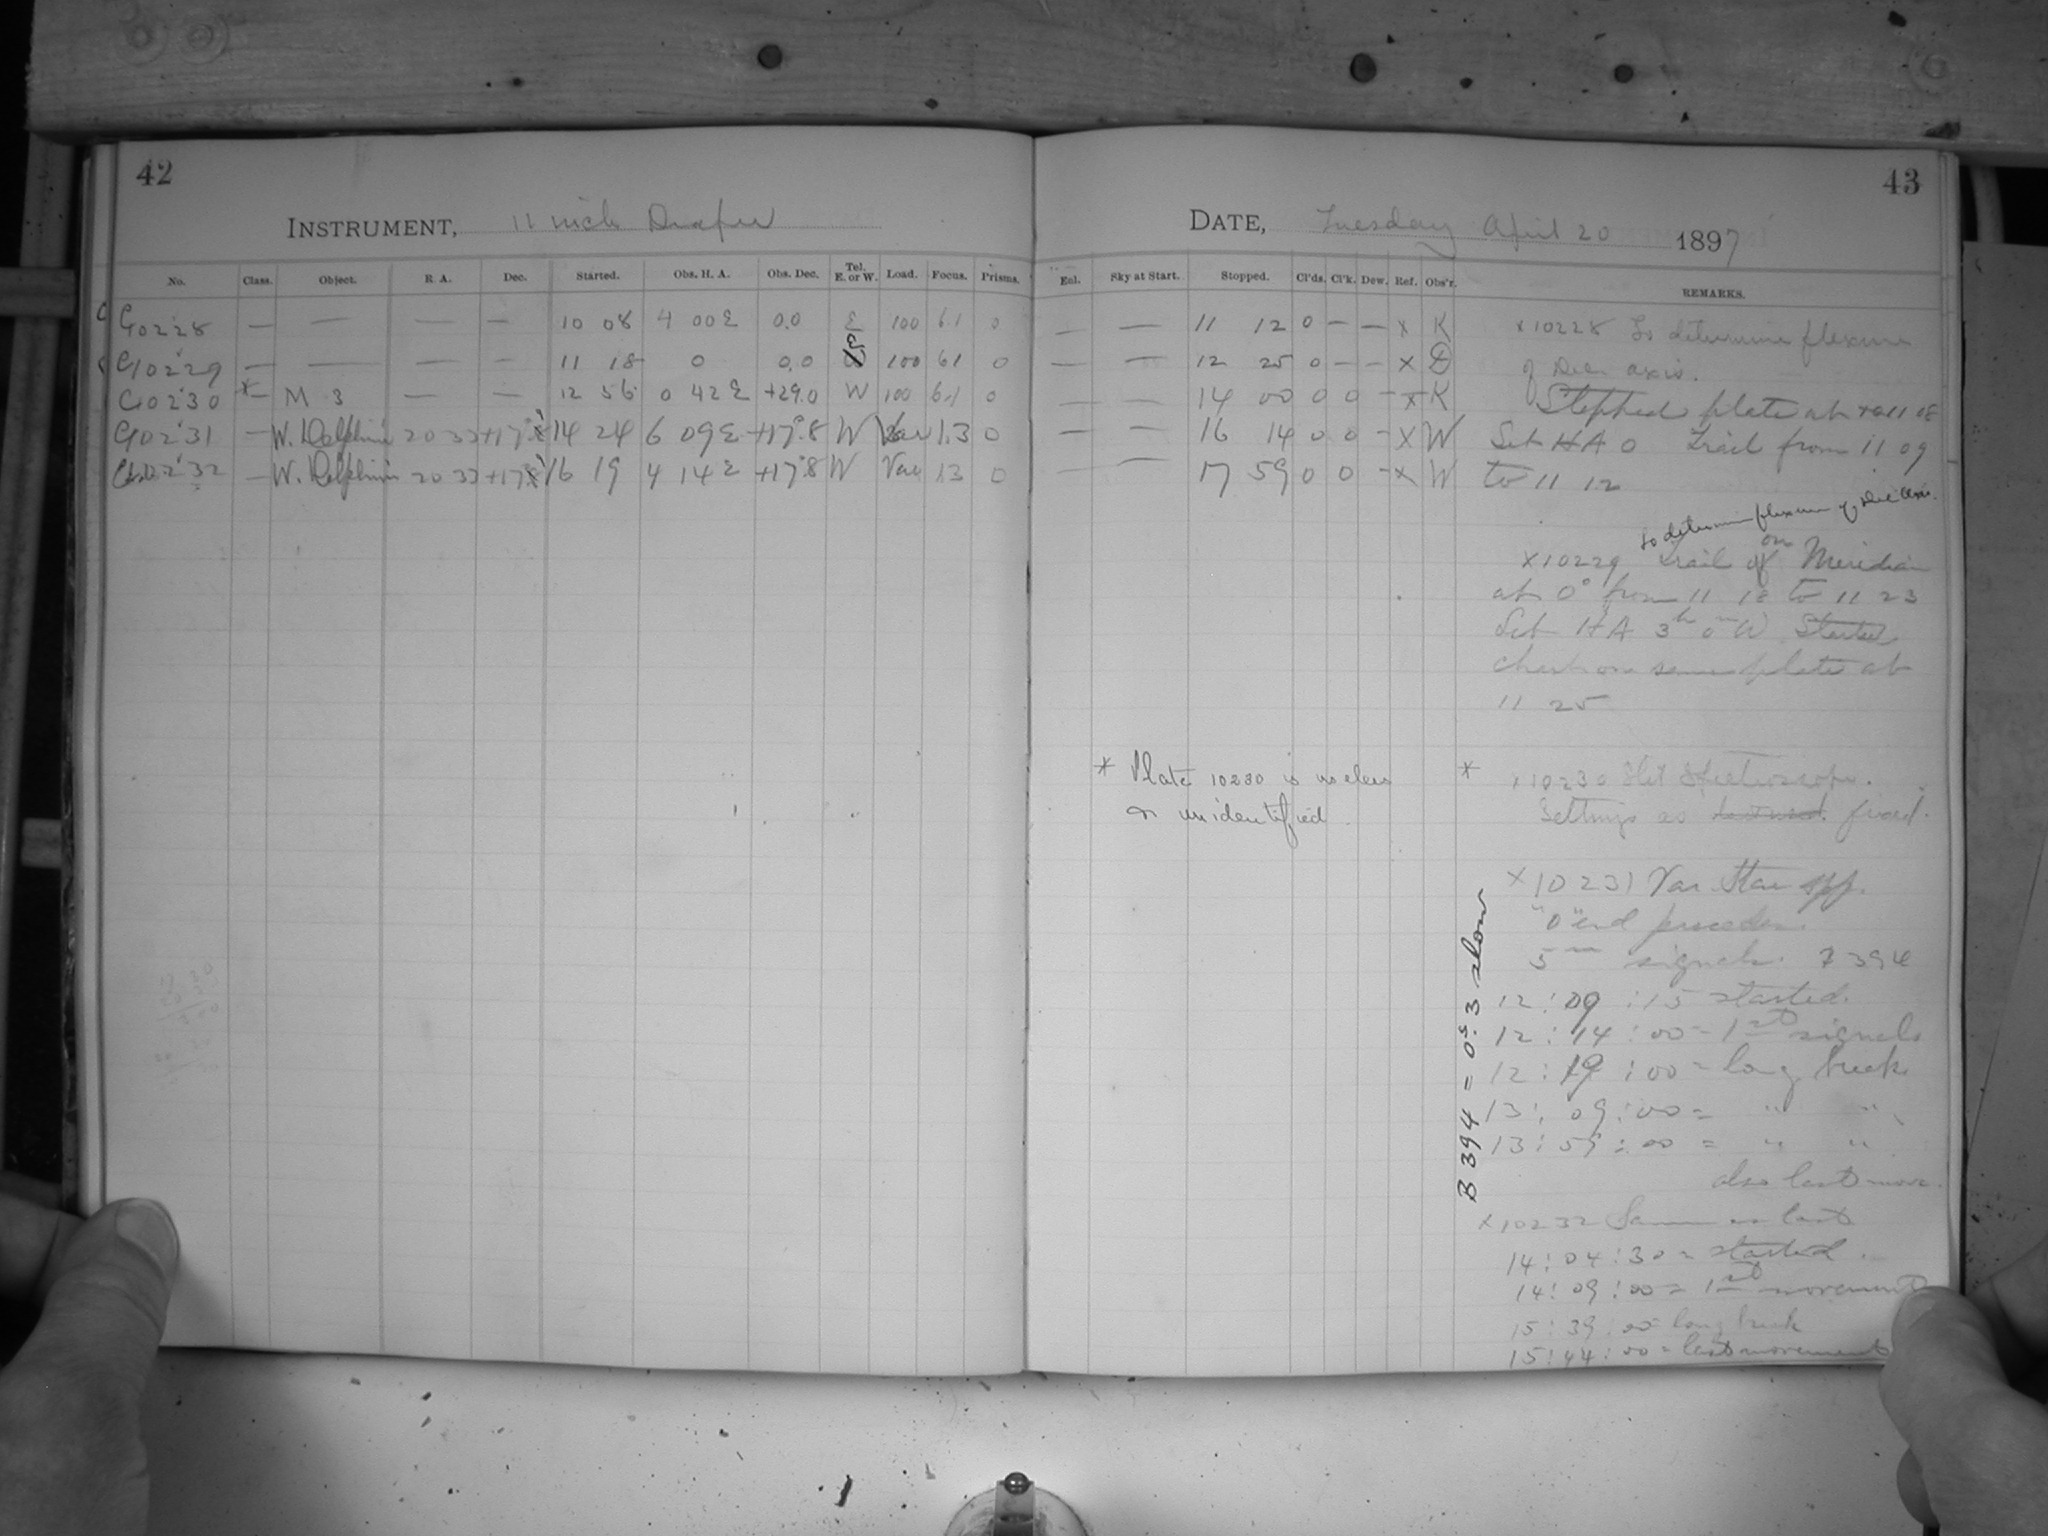 42
INSTRUMENT, 11 inch Draper
No. Class. Object. R. A. Dec. Started. Obs. H. A. Obs. Dec. Tel. E. or W. Load. Focus. Prisms.
C 10228 — — — — 10 08 4 00 E 0.0 E 100 6.1 0
C 10229 — — — — 11 18 0 0.0 E 100 61 0
C 10230 *— M 3 — — 12 56 0 42 E +29.0 W 100 6.1 0
C 10231 — W. Delphini 20 33 +17°.8 14 24 6 09 E +17°.8 W Var 1.3 0
C 10232 — W. Delphini 20 33 +17°.8 16 19 4 14 E +17°8 W Var 1.3 0
43
DATE, Tuesday April 20 1897
Eol. Sky at Start. Stopped. Cl'ds. Cl'k. Dew. Ref. Obs'r. REMARKS.
— — 11 12 0 — — x K
— — 12 25 0 — — x D
— — 14 00 0 0 — x K
— — 16 14 0 0 — x W
— — 17 59 0 0 — x W
x 10228 To determine flexure
of Dec. axis.
Stopped plate at 11 08
Set HA 0 Trail from 11 09
to 11 12
To determine flexure of Dec axis.
x 10229 Trail on Meridian
at 0° from 11 18 to 11 23
Set HA 3h 0m W. Started
chart on same plate at
11 25
* Plate 10230 is useless
& unidentified.
* x 10230 Slit Spectroscope.
Settings as found.
x 10231 Var. Star app.
"0" end precedes.
5m signals. B 394
12 : 09 : 15 started.
12 : 14 : 00 = 1st signals
12 : 19 : 00 = long break
13 : 09 : 00 = " "
13 : 59 : 00 = " "
also last move.
B 394 = 0s.3 slow
x 10232 Same as last
14 : 04 : 30 = started.
14 : 09 : 00 = 1st movement
15 : 39 : 00 = long break
15 : 44 : 00 = last movement